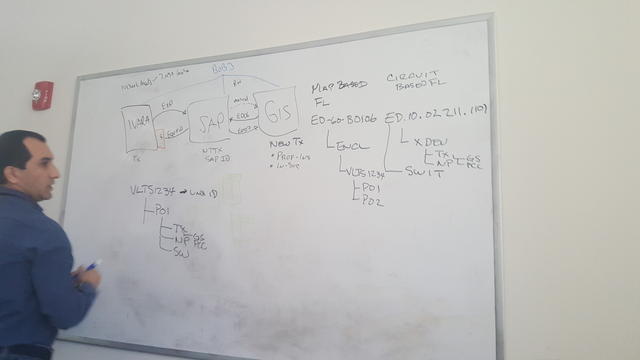 BOB3
IVARA
SAP
GIS
TX
NTTX
SAP ID
NEW TX
• PROP-INS
• IN-SVC
MAP BASED
FL
ED-60-B0106
ENCL
VLTS1234
PO1
PO2
CIRCUIT
BASED FL
ED.10.02.211.(19)
XDEV
TX
NP GS
PCC
SWIT
VLTS1234 → UNQ ID
PO1
TX
NP GS
PCC
SW